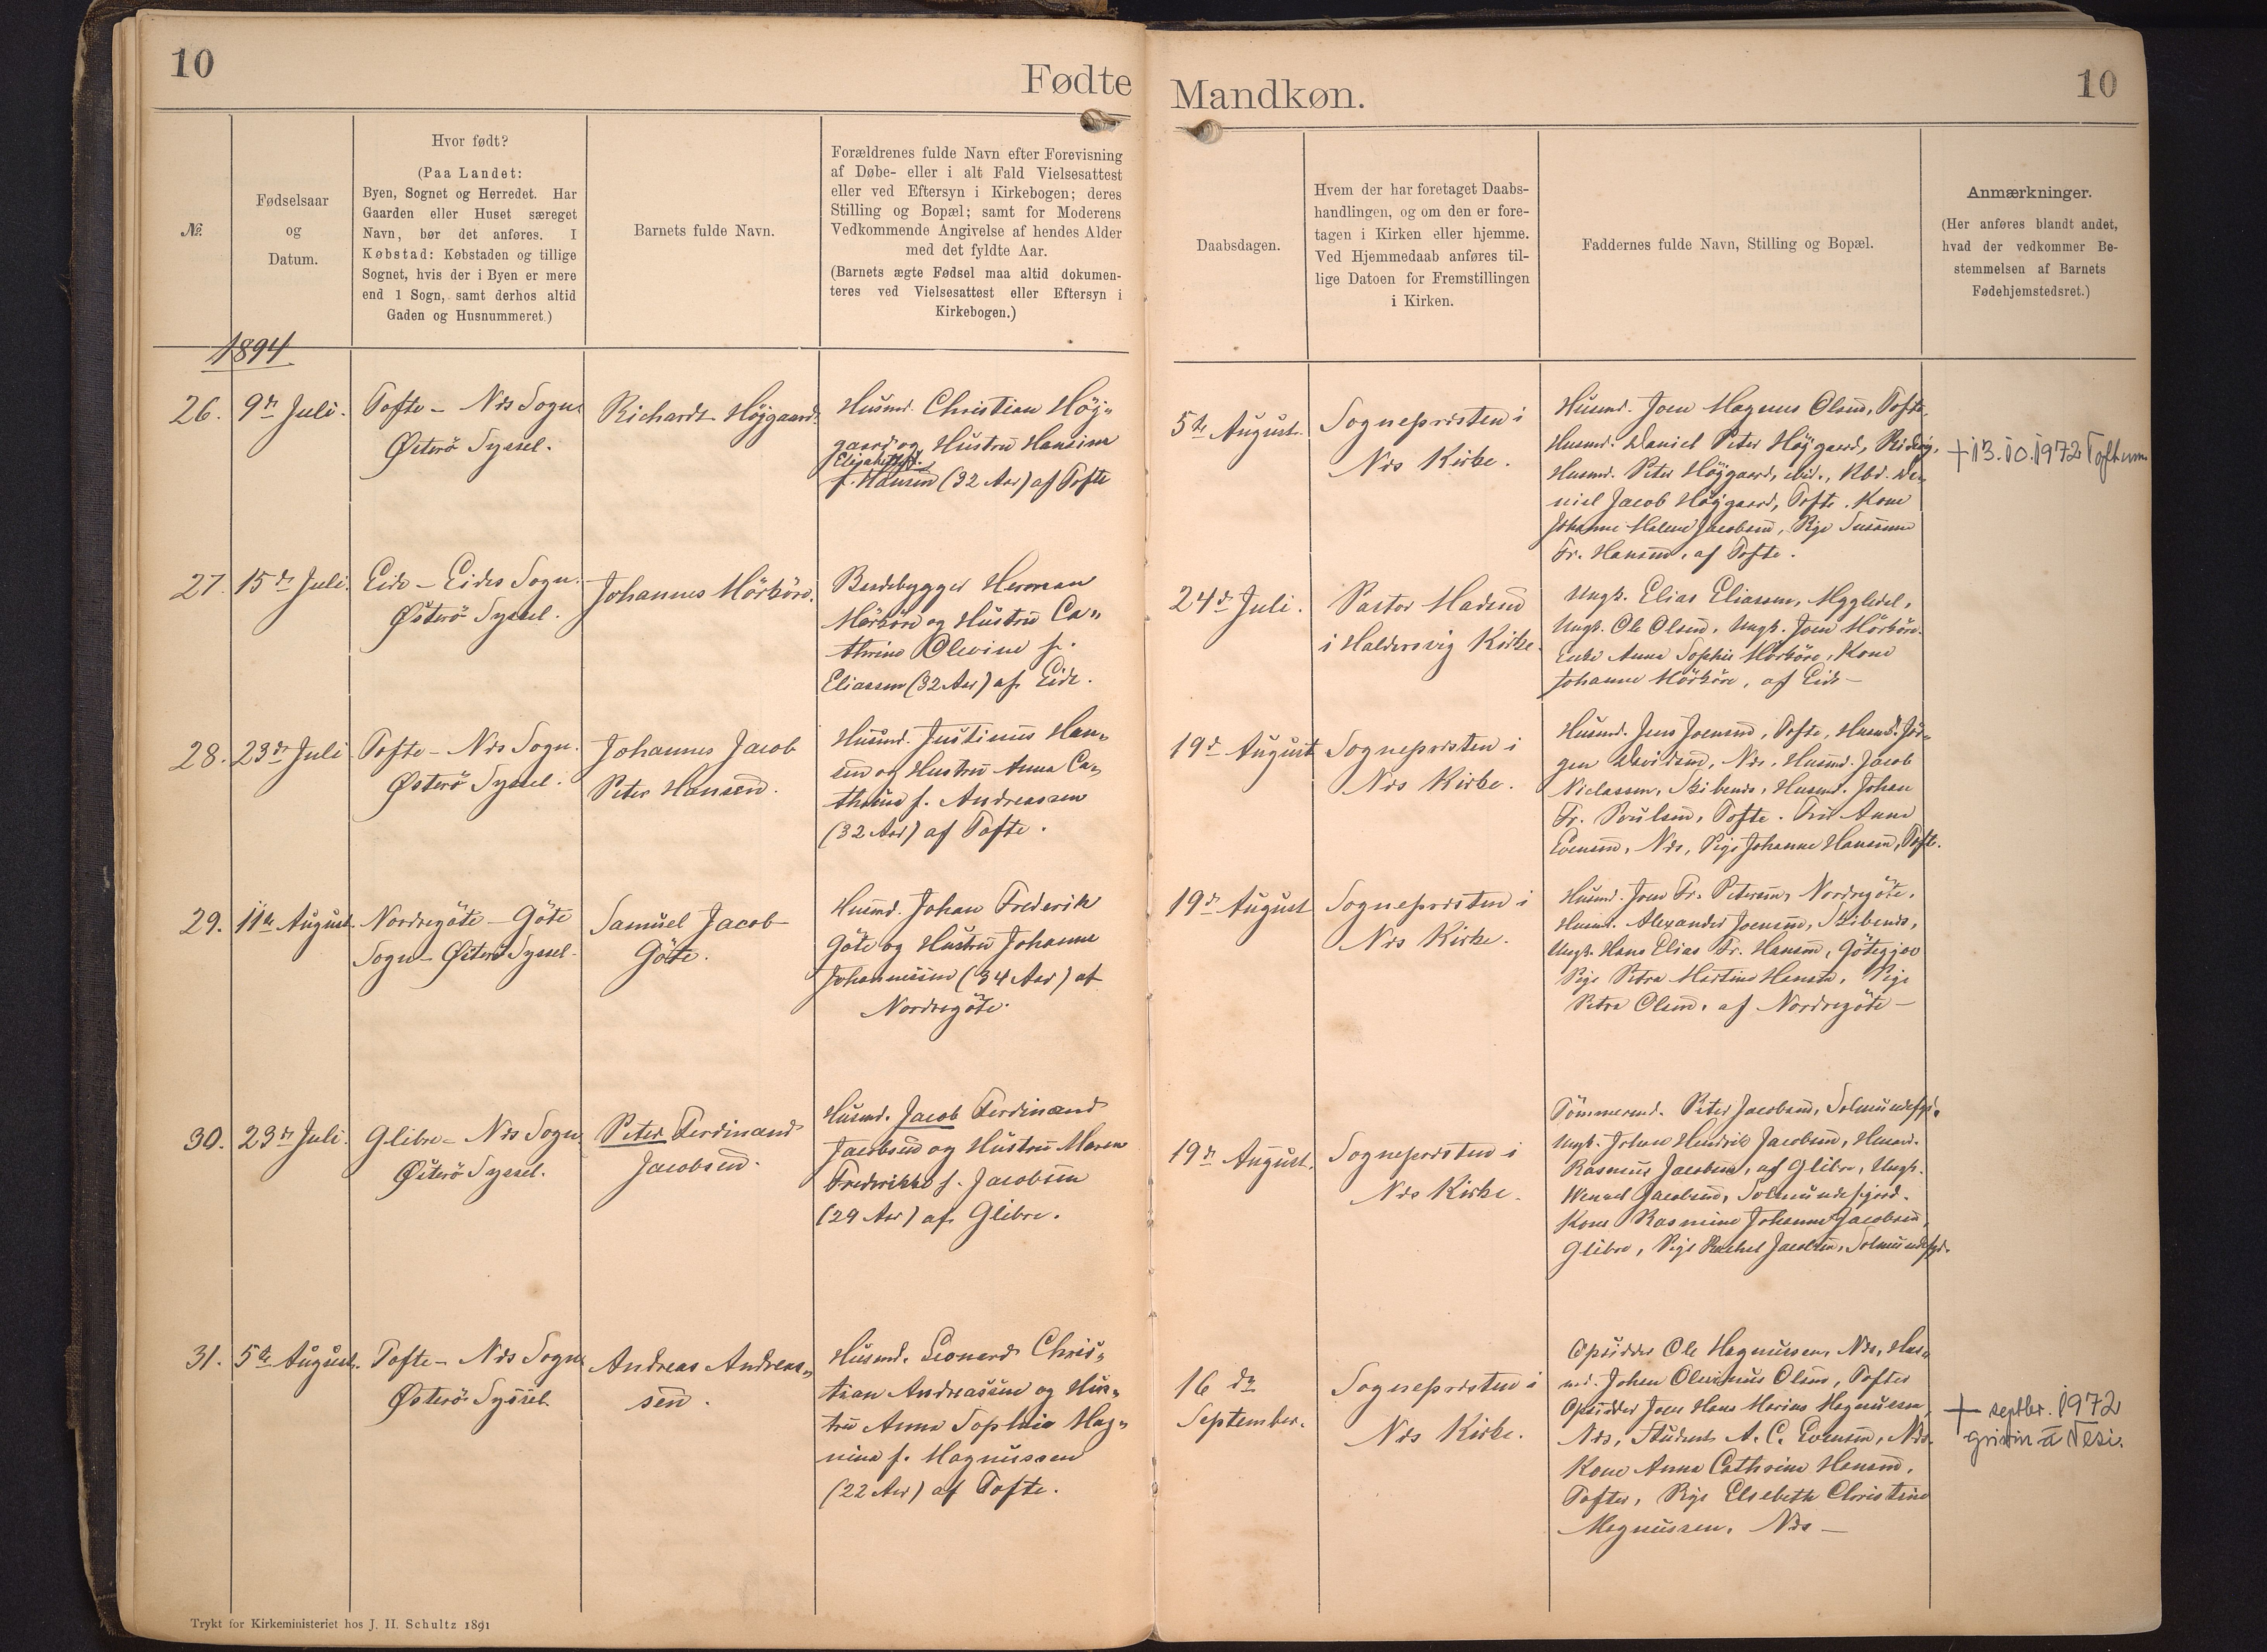 10
Fødte
Mandkøn.
10
№.
Fødselsaar
og
Datum.
Hvor født?
(Paa Landet:
Byen, Sognet og Herredet. Har
Gaarden eller Huset særeget
Navn, bør det anføres. I
Købstad: Købstaden og tillige
Sognet, hvis der i Byen er mere
end 1 Sogn, samt derhos altid
Gaden og Husnummeret.)
Barnets fulde Navn.
Forældrenes fulde Navn efter Forevisning
af Døbe- eller i alt Fald Vielsesattest
eller ved Eftersyn i Kirkebogen; deres
Stilling og Bopæl; samt for Moderens
Vedkommende Angivelse af hendes Alder
med det fyldte Aar.
(Barnets ægte Fødsel maa altid dokumen-
teres ved Vielsesattest eller Eftersyn i
Kirkebogen.)
Daabsdagen.
Hvem der har foretaget Daabs-
handlingen, og om den er fore-
tagen i Kirken eller hjemme.
Ved Hjemmedaab anføres til-
lige Datoen for Fremstillingen
i Kirken.
Faddernes fulde Navn, Stilling og Bopæl.
Anmærkninger.
(Her anføres blandt andet,
hvad der vedkommer Be-
stemmelsen af Barnets
Fødehjemstedsret.)
1894
26.
9de Juli.
Tofte - Nes Sogn.
Østerö Syssel.
Richardt Höjgaard.
Husmd. Christian Höj-
gaard og Hustru Hansine
Elisabeth
f. Hansen (32 Aar) af Tofte
5te August.
Sognepresten i
Nes Kirke.
Husmd. Joen Magnus Olsen, Tofte,
Husmd. Daniel Peter Höjgaard,
Husmd. Peter Höjgaard, ibid., Kbd. Da-
niel Jacob Höjgaard, Tofte. Kone
Johanne Malene Jacobsen, Pige Susanne
Fr. Hansen, af Tofte.
+ 13.10.1972 Toftum.
27.
15de Juli.
Eide - Eides Sogn.
Österö Syssel.
Johannes Mörköre.
Huusbygger Herman
Mörköre og Hustru Ca-
thrine Olevine f.
Eliassen (32 Aar) af Eide.
24de Juli.
Pastor Madsen
i Haldersvig Kirke.
Ungk. Elias Eliassen,
Ungk. Ole Olsen, Ungk. Joen Mörköre.
Enke Anna Sophie Mörköre, Kone
Johanne Mörköre, af Eide -
28.
23de Juli
Tofte - Nes Sogn.
Østerö Syssel.
Johannes Jacob
Peter Hansen.
Husmd. Justinus Han-
sen og Hustru Anna Ca-
thrine f. Andreassen
(32 Aar) af Tofte.
19de August
Sognepresten i
Nes Kirke.
Husmd. Jens Joensen, Tofte, Husmd. Jör-
gen Davidsen, Nes, Husmd. Jacob
Niclassen, Skibenes, Husmd. Johan
Fr. Poulsen, Tofte. Frü Anne
Evensen, Nes, Pige Johanne Hansen, Tofte.
29.
11te August.
Nordregöte - Göte
Sogn - Østerö Syssel.
Samuel Jacob
Göte.
Husmd. Johan Frederik
Göte og Hustru Johanne
Johannessen (34 Aar) af
Nordregöte.
19de August
Sognepresten i
Nes Kirke.
Husmd. Joen Fr. Petersen, Nordregöte,
Husmd. Alexander Joensen, Skibenes,
Ungk. Hans Elias Fr. Hansen, Götegjov
Pige Petra Martine Hansen, Pige
Petra Olsen, af Nordregöte -
30.
23de Juli.
Glibre - Nes Sogn
Østerö Syssel.
Peter Ferdinand
Jacobsen.
Husmd. Jacob Ferdinand
Jacobsen og Hustru Maren
Frederikke f. Jacobsen
(29 Aar) af Glibre.
19de August.
Sognepresten i
Nes Kirke.
Tömmermd. Peter Jacobsen, Solmundefjd.
Ungk. Johan Hendrik Jacobsen, Husmd.
Rasmus Jacobsen, af Glibre, Ungk.
Wenzel Jacobsen, Solmundefjord.
Kone Rasmine Johanne Jacobsen,
Glibre, Pige Rachel Jacobsen, Solmundefjd.
31.
5te August.
Tofte - Nes Sogn
Østerö Syssel.
Andreas Andreas-
sen.
Husmd. Leonard Chris-
tian Andreassen og Hus-
tru Anna Sophie Mag-
nine f. Magnussen
(22 Aar) af Tofte.
16de
September.
Sognepresten i
Nes Kirke.
Opsidder Ole Magnussen, Nes, Hus-
md. Johan Olevinus Olsen, Toftes
Opsidder Joen Hans Marius Magnussen,
Nes, Student A. C. Evensen, Nes.
Kone Anna Cathrine Hansen,
Toftes, Pige Elsebeth Christine
Magnussen, Nes -
+ septbr. 1972
grivin á Nesi.
Trykt for Kirkeministeriet hos J. H. Schultz 1891